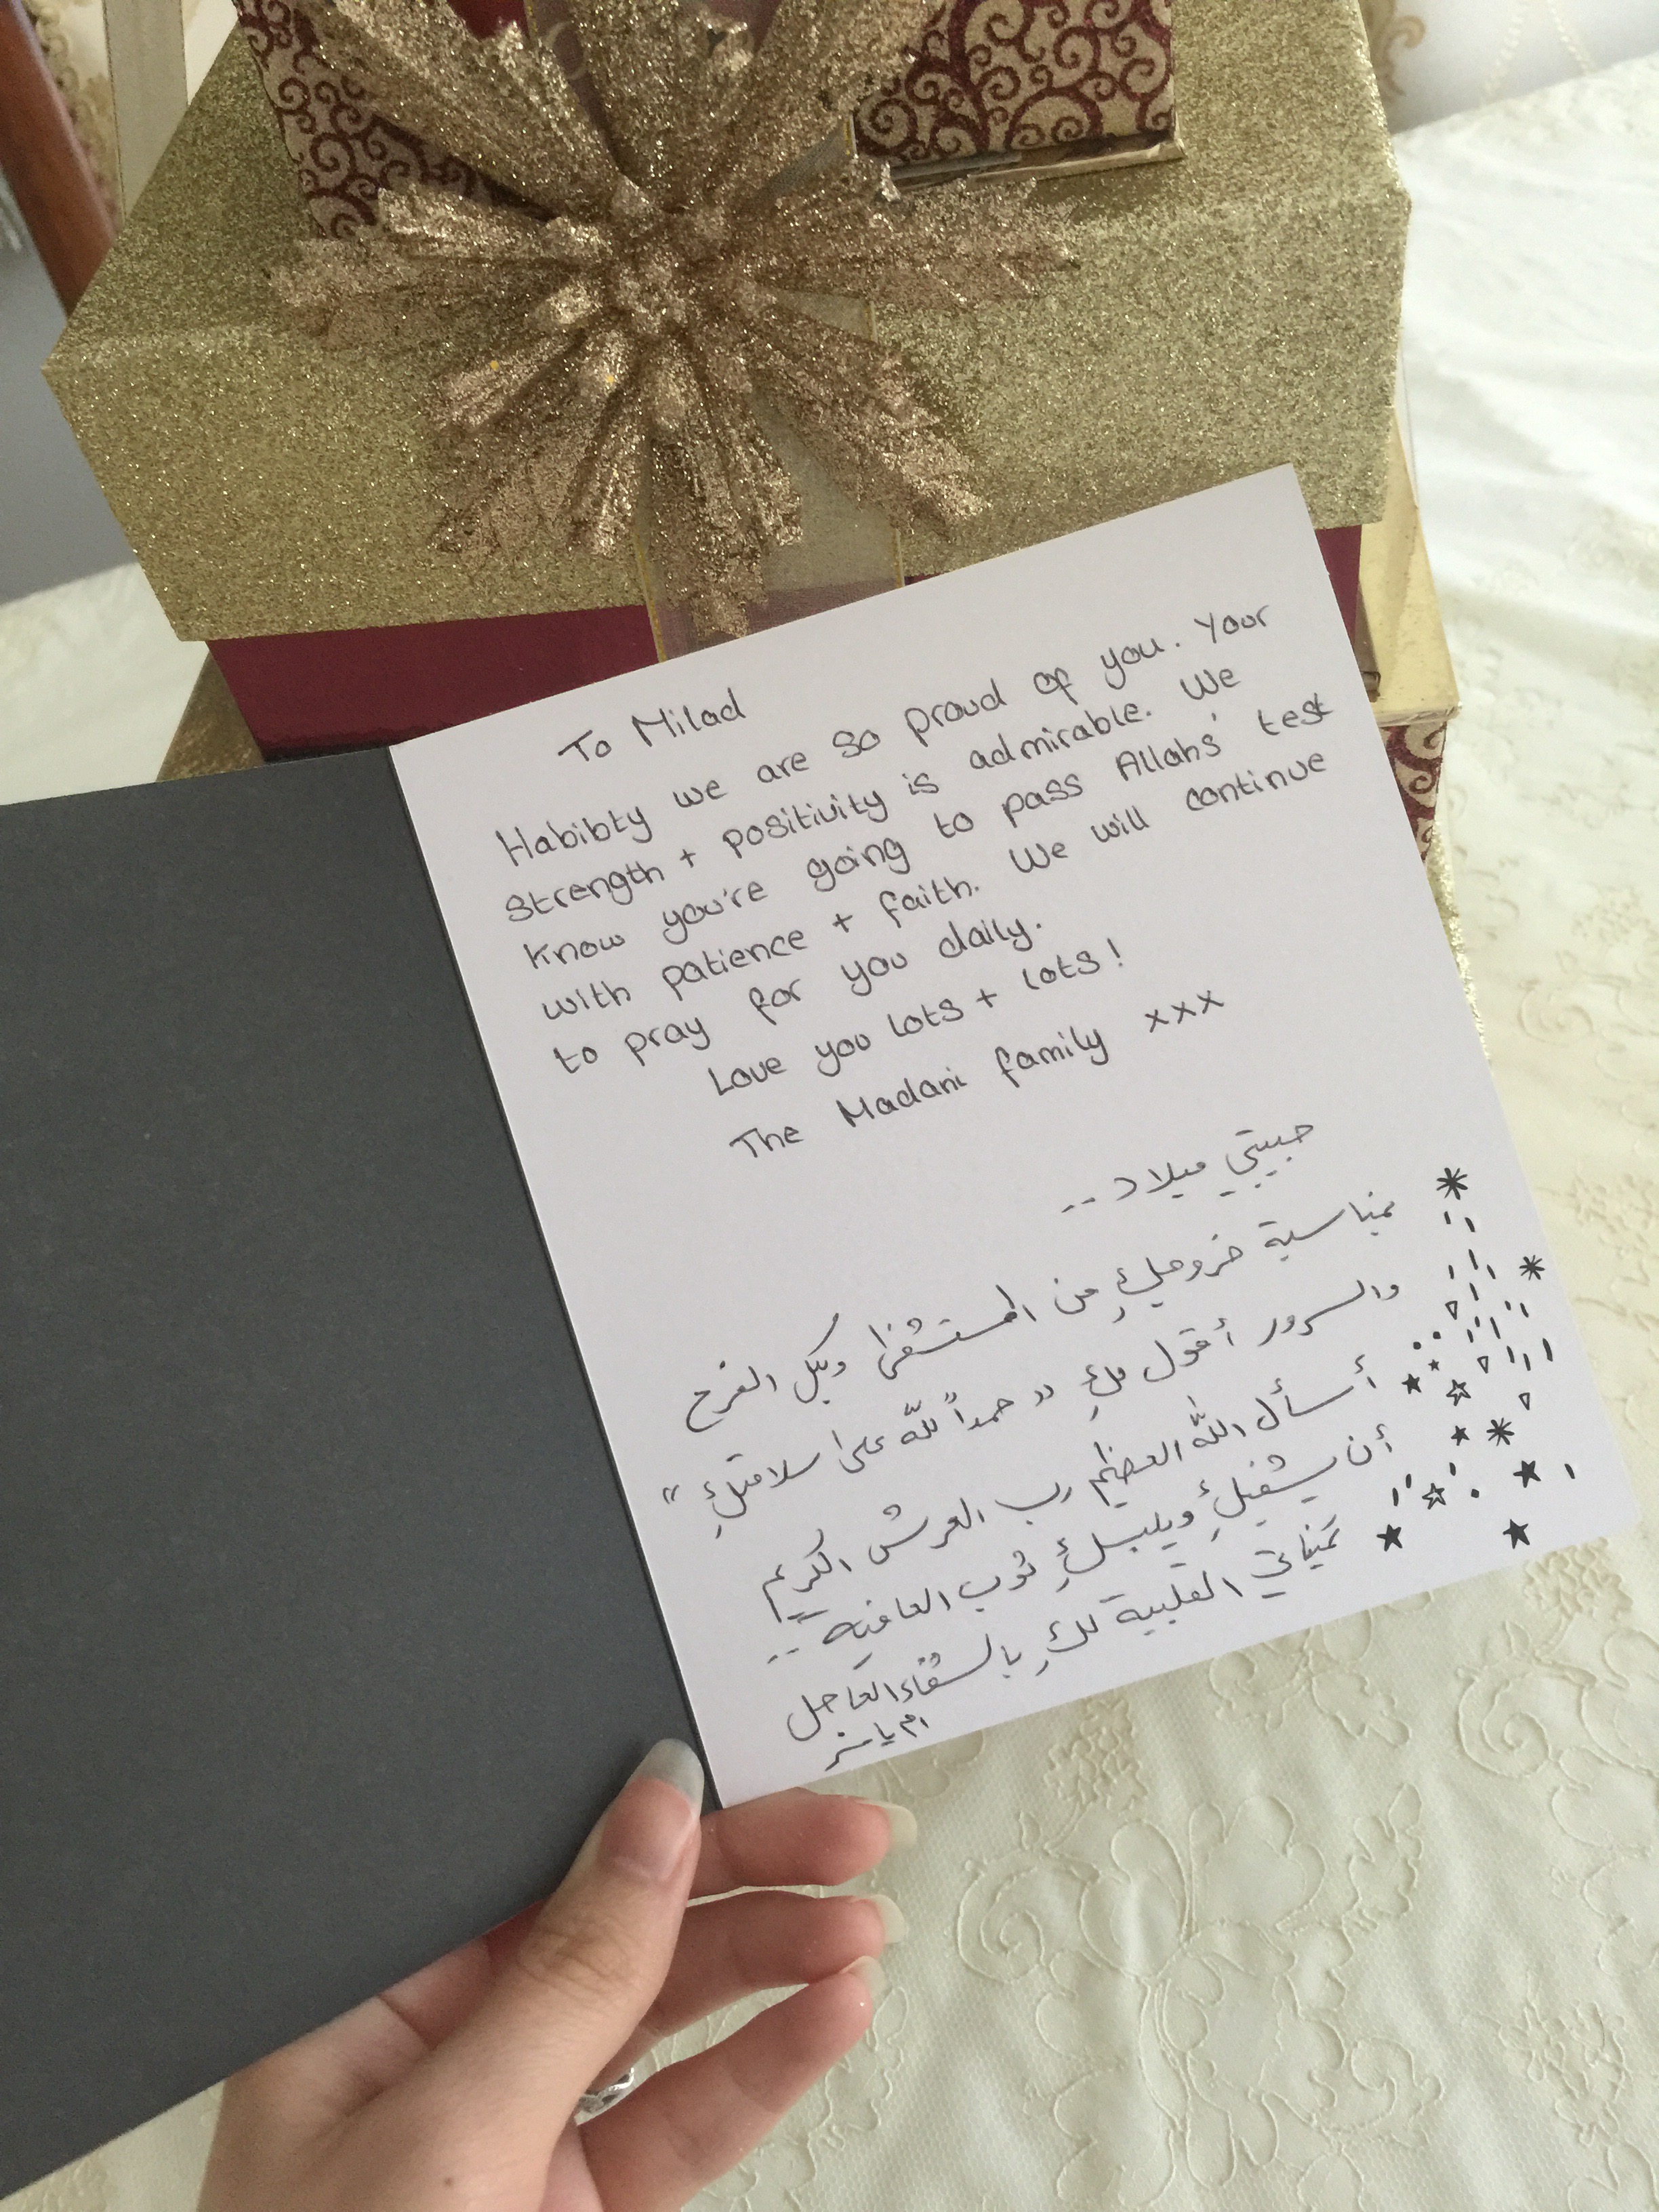 To Milad
Habibty we are so proud of you. Your
strength + positivity is admirable. We
know you're going to pass Allahs' test
with patience + faith. We will continue
to pray for you daily.
Love you lots + lots!
The Madani family xxx
حبيبتي ميلاد..
بمناسبة خروجكِ من المستشفى وبكل الفرح
والسرور أقول لكِ " حمداً لله على سلامتكِ "
أسأل الله العظيم رب العرش الكريم
أن يشفيكِ ويلبسكِ ثوب العافية ..
تمنياتي القلبية لكِ بالشفاء العاجل
ام ياسر